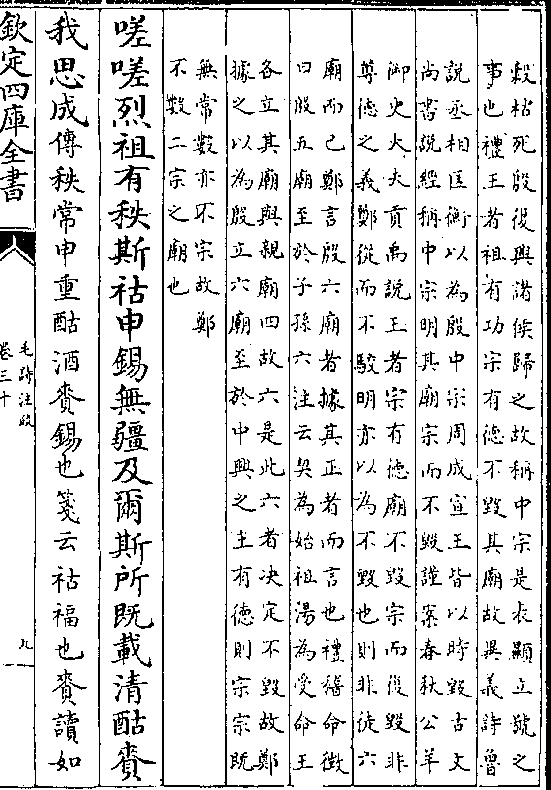 穀枯死殷復興諸侯歸之故稱中宗是表顯立號之
事也禮王者祖有功宗有德不毀其廟故異義詩魯
說丞相匡衡以為殷中宗周成宣王皆以時毀古文
尚書說經稱中宗明其廟宗而不毀謹案春秋公羊
御史大夫貢禹說王者宗有德廟不毀宗而復毀非
尊德之義鄭從而不駮明亦以為不毀也則非徒六
廟而已鄭言殷六廟者據其正者而言也禮稽命徴
曰殷五廟至於子孫六注云契為始祖湯為受命王
各立其廟與親廟四故六是此六者决定不毀故鄭
據之以為殷立六廟至於中興之主有德則宗宗既
無常數亦不宗故鄭
不數二宗之廟也
嗟嗟烈祖有秩斯祜申錫無疆及爾斯所既載清酤賚
我思成傳秩常申重酤酒賚錫也箋云祜福也賚讀如
欽定四庫全書
毛詩注疏
卷三十
九